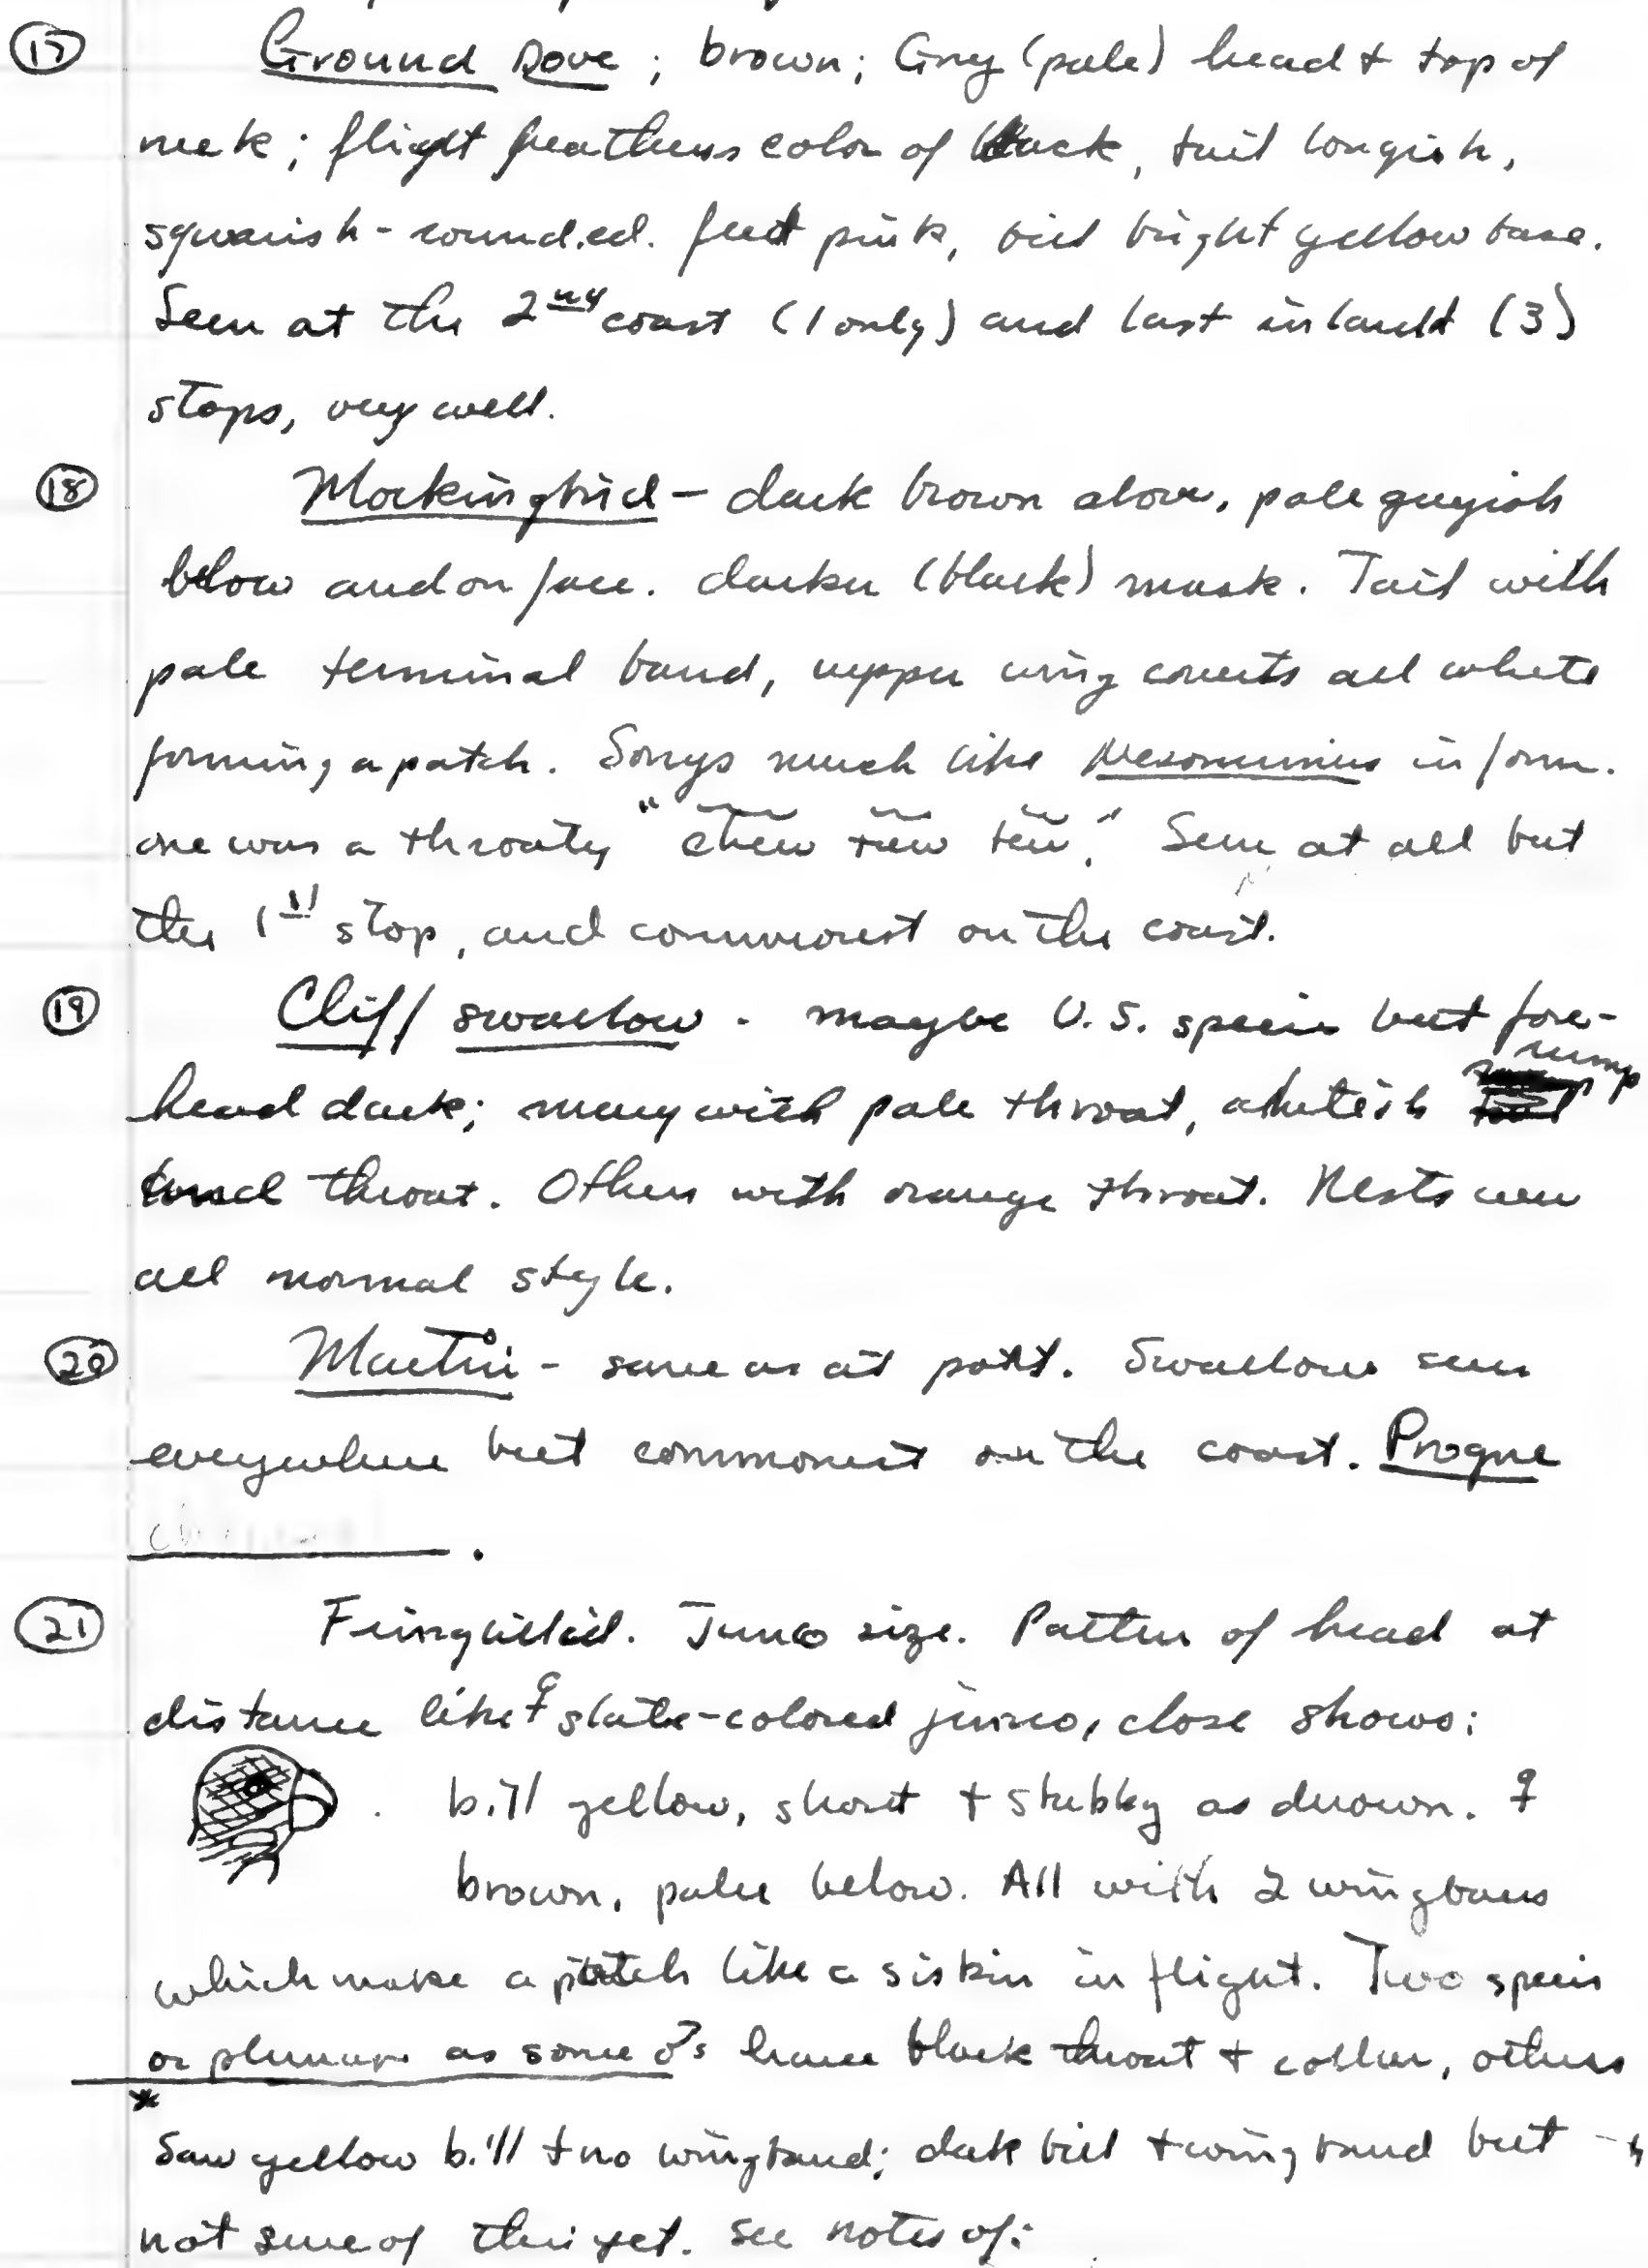 (17) Ground Dove; brown; Grey (pale) head + top of
neck; flight feathers color of back, tail longish,
squarish-rounded. feet pink, bill bright yellow base.
Seen at the 2nd coast (1 only) and last inland (3)
stops, very well.
(18) Mockingbird - dark brown above, pale greyish
below and on face. darker (black) mask. Tail with
pale terminal band, upper wing coverts all white
forming a patch. Songs much like Nesomimus in form.
one was a throaty "chew tew tew." Seen at all but
the 1st stop, and commonest on the coast.
(19) Cliff swallow - maybe U.S. species but fore-
head dark; many with pale throat, whitish rump
throat. Others with orange throat. Nests were
all normal style.
(20) Martin - same as at port. Swallows seen
everywhere but commonest on the coast. Progne
.
(21) Fringillid. Junco size. Pattern of head at
distance like ♀ slate-colored junco, close shows:
. bill yellow, short + stubby as drawn. ♀
brown, paler below. All with 2 wingbars
which make a patch like a siskin in flight. Two species
or plumages as some ♂s have black throat + collar, others
* Saw yellow bill + no wingband; dark bill + wing band but
not sure of this yet. See notes of: